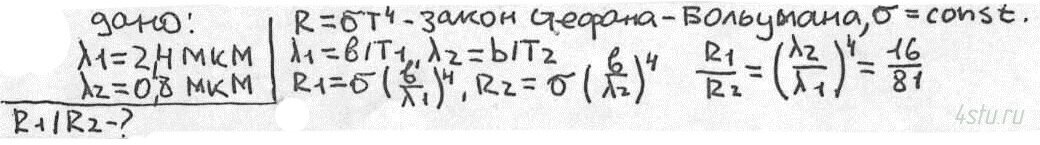 дано:
λ1=2,4 мкм
λ2=0,8 мкм
R1/R2-?
R=σT⁴-закон Стефана-Больцмана, σ=const.
λ1=b/T1, λ2=b/T2
R1=σ(b/λ1)⁴, R2=σ(b/λ2)⁴ R1/R2=(λ2/λ1)⁴=16/81
4stu.ru